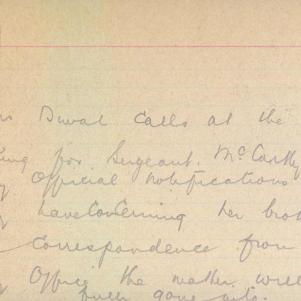 Duval calls at the
for Sergeant. McCarthy
Official Notifications
have concerning her brot
Correspondence from
Office the matter will
fully gone into.